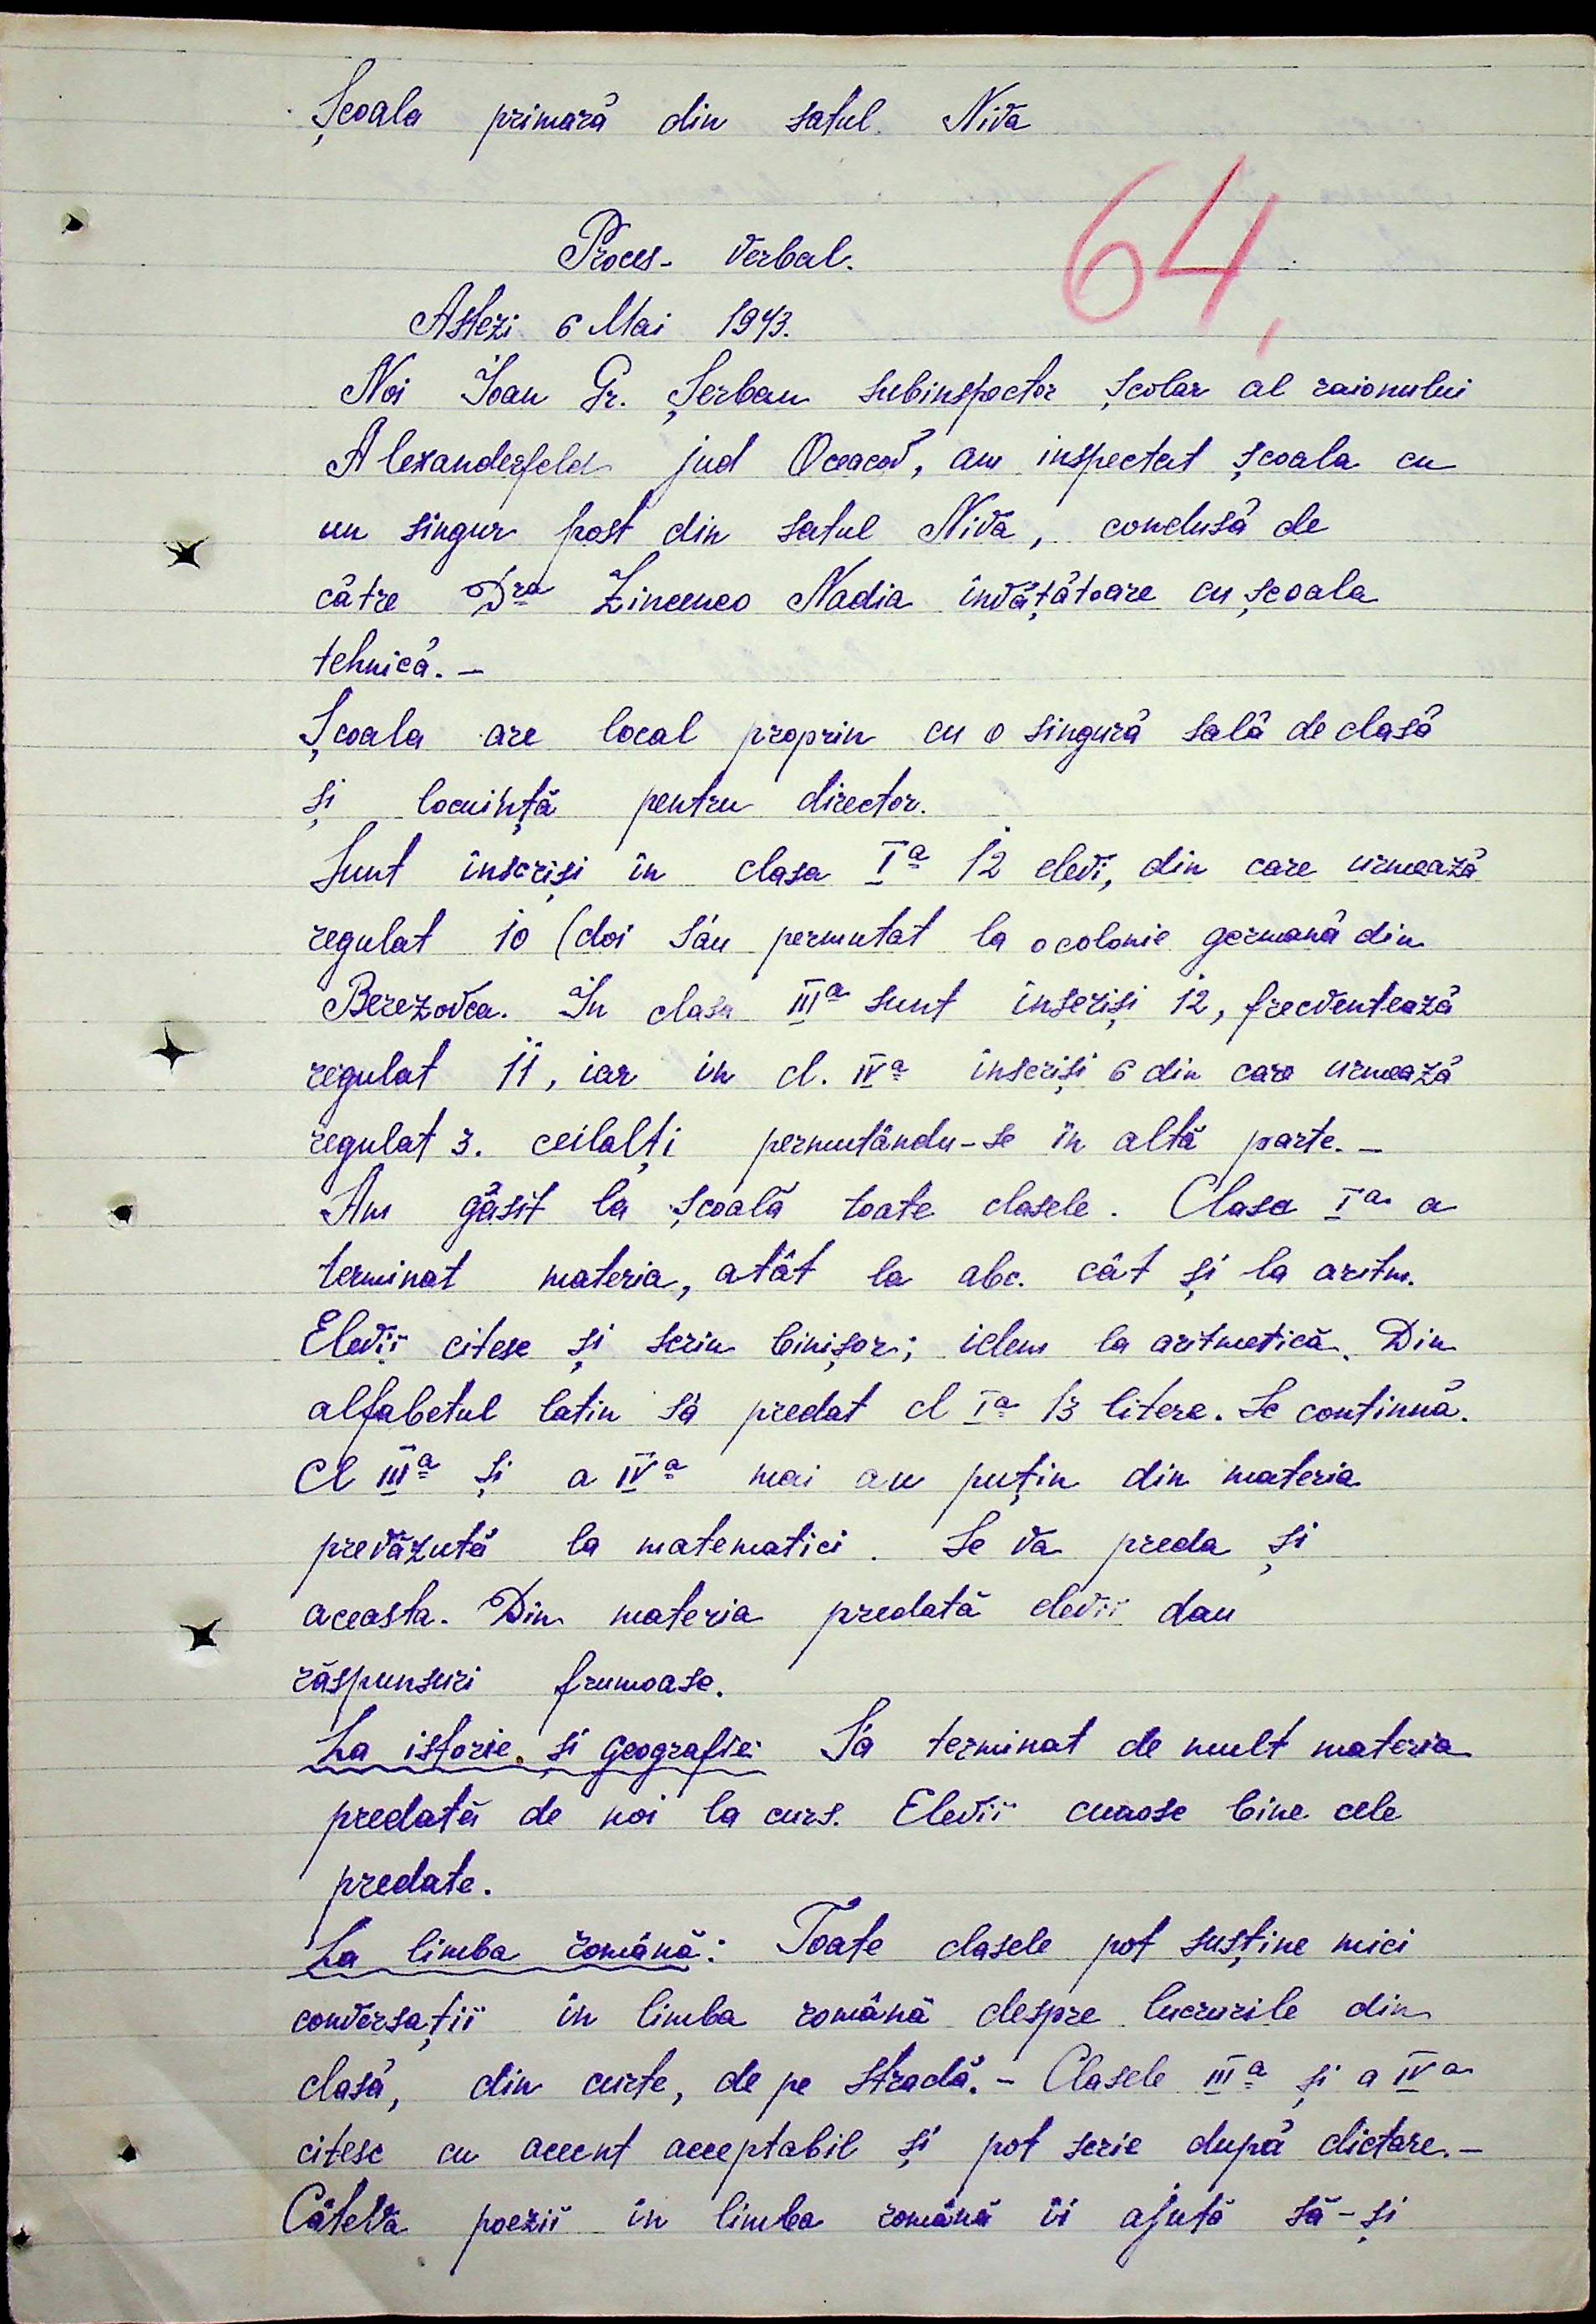 Școala primară din satul Niva
64,
Proces- verbal.
Astezi 6 Mai 1943.
Noi Ioan Gr. Șerban subinspector școlar al raionului
Alexanderfeld jud Oceacov, am inspectat școala cu
un singur post din satul Niva, condusă de
către Dra Zincenco Nadia învățătoare cu școala
tehnică. -
Școala are local propriu cu o singură sală de clasă
și locuință pentru director.
Sunt înscriși în clasa Ia 12 elevi, din care urmează
regulat 10 (doi s'au permutat la o colonie germană din
Berezovca. In clasa IIIa sunt înscriși 12, frecventează
regulat 11, iar în cl. IVa înscriși 6 din care urmează
regulat 3. ceilalți permutându-se în altă parte. -
Am găsit la școală toate clasele. Clasa Ia a
terminat materia, atât la abc. cât și la aritm.
Elevii citesc și scriu binișor; idem la aritmetică. Din
alfabetul latin s'a predat cl Ia 13 litere. Se continuă.
Cl IIIa și a IVa mai au puțin din materia
prevăzută la matematici. Se va preda și
aceasta. Din materia predată elevii dau
răspunsuri frumoase.
La istorie și geografie: S'a terminat de mult materia
predată de noi la curs. Elevii cunosc bine cele
predate.
La limba română: Toate clasele pot susține mici
conversații în limba română despre lucrurile din
clasă, din curte, de pe stradă. - Clasele IIIa și a IVa
citesc cu accent acceptabil și pot scrie după dictare. -
Câteva poezii în limba română îi ajută să-și